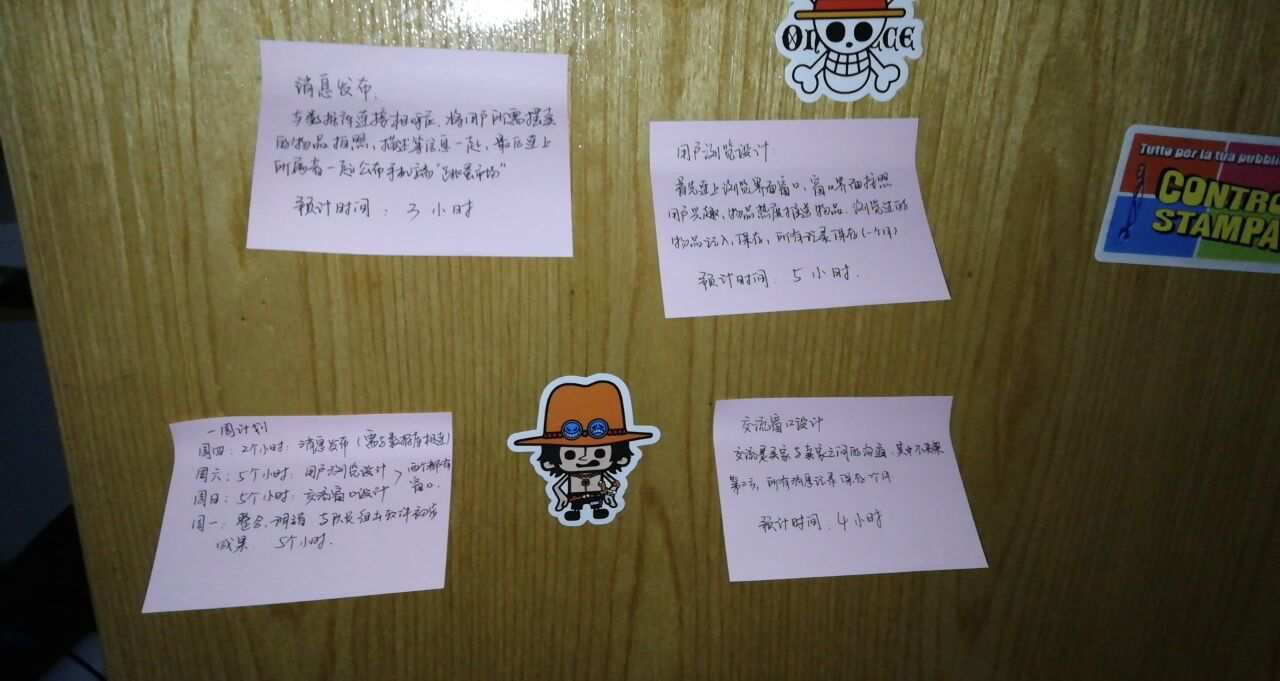 消息发布.
与数据库连接相呼应、将用户所需摆卖
的物品拍照,描述等信息一起,最后连上
所属者一起公布手机端"跳蚤市场"
预计时间:3小时
ON CE
用户浏览设计:
首先连上浏览界面窗口,窗口界面按照
用户兴趣,物品热度推送物品.浏览过的
物品记入,保存,所有记录保存(一个月).
预计时间:5小时.
Tutto per la tua pubbli
CONTRO
STAMPA
一周计划
周四:2个小时:消息发布(需与数据库相连)
周六:5个小时:用户浏览设计
周日:5个小时:交流窗口设计
两个都有
窗口.
周一:整合、调消 与队员组出软件初步
成果. 5个小时.
交流窗口设计
交流是买家与卖家之间的沟通.其中不来
第三方,所有消息记录保存一个月.
预计时间:4小时